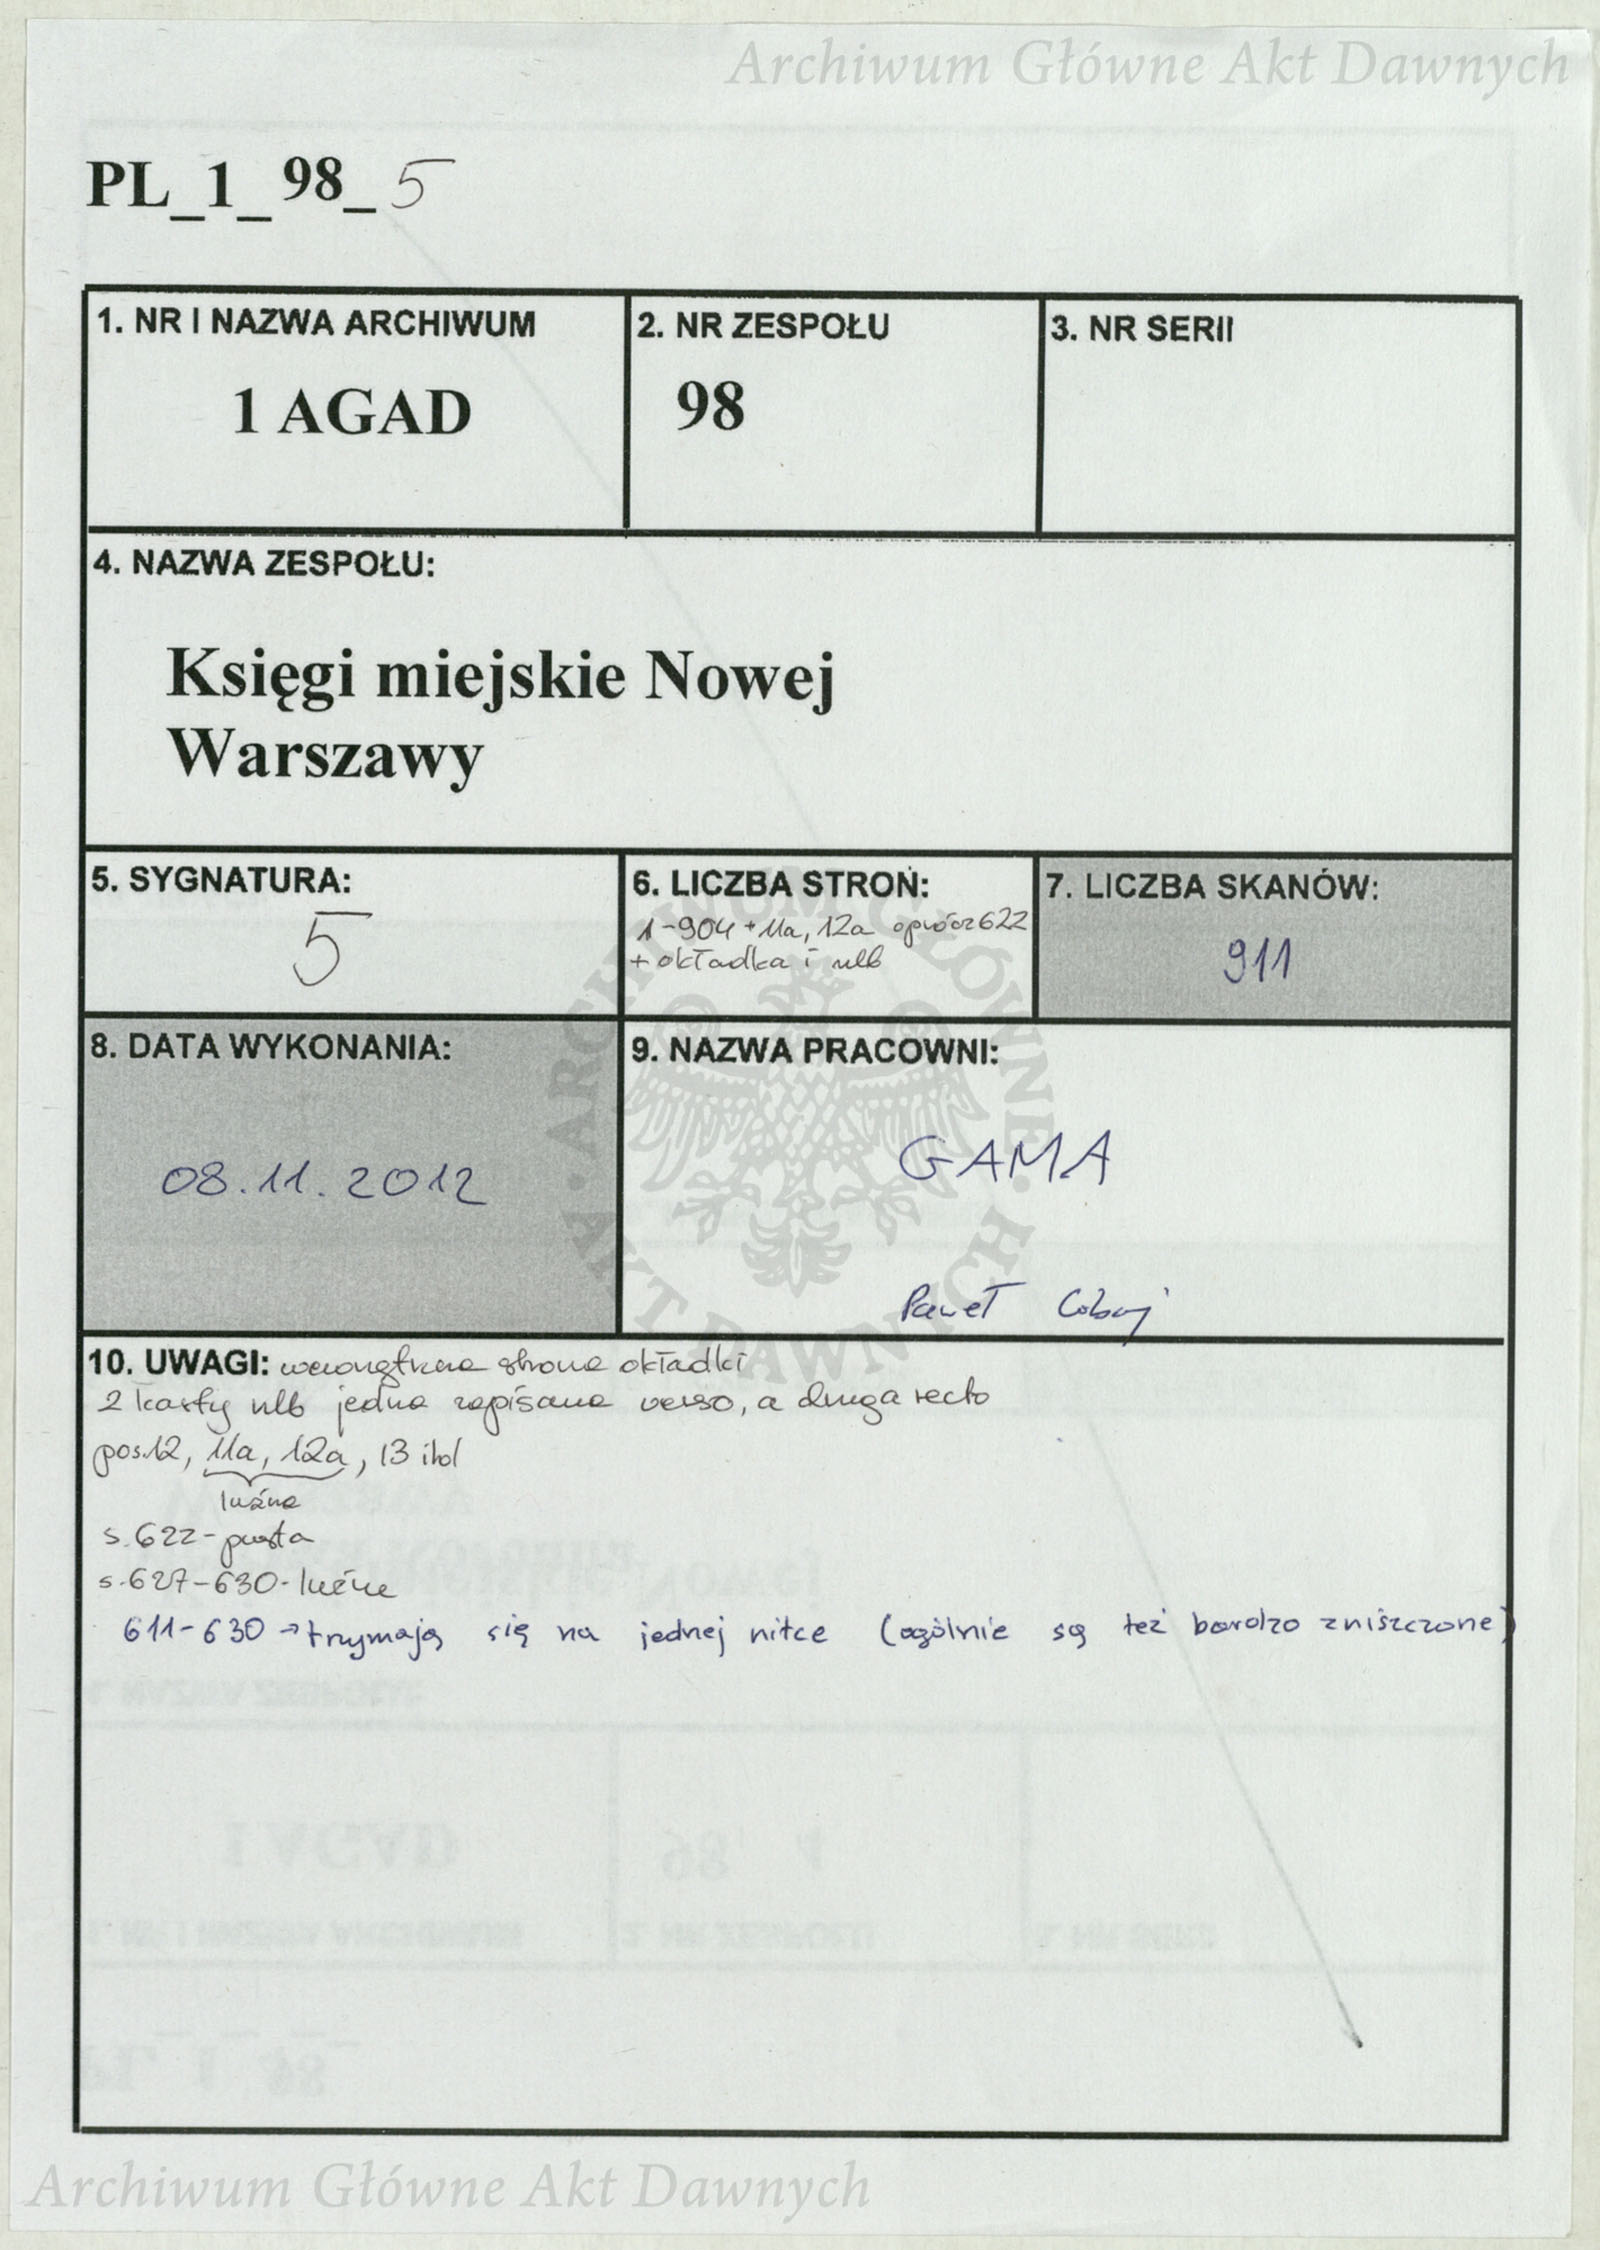 Archiwum Główne Akt Dawnych
PL_1_98_5
1. NR I NAZWA ARCHIWUM
1 AGAD
2. NR ZESPOŁU
98
3. NR SERII
4. NAZWA ZESPOŁU:
Księgi miejskie Nowej
Warszawy
5. SYGNATURA:
5
6. LICZBA STRON:
1-904 + 11a, 12a oprócz 622
+ okładka i nlb
7. LICZBA SKANÓW:
911
8. DATA WYKONANIA:
08.11.2012
9. NAZWA PRACOWNI:
GAMA
Paweł
10. UWAGI: wewnętrzna strona okładki
2 karty nlb jedna zapisana verso, a druga recto
po s.12, 11a, 12a, 13 itd
luźne
s.622 - pusta
s.627-630 - luźne
611-630 → trzymają się na jednej nitce (ogólnie są też bardzo zniszczone)
ARCHIWUM GŁÓWNE · AKT DAWNYCH ·
Archiwum Główne Akt Dawnych